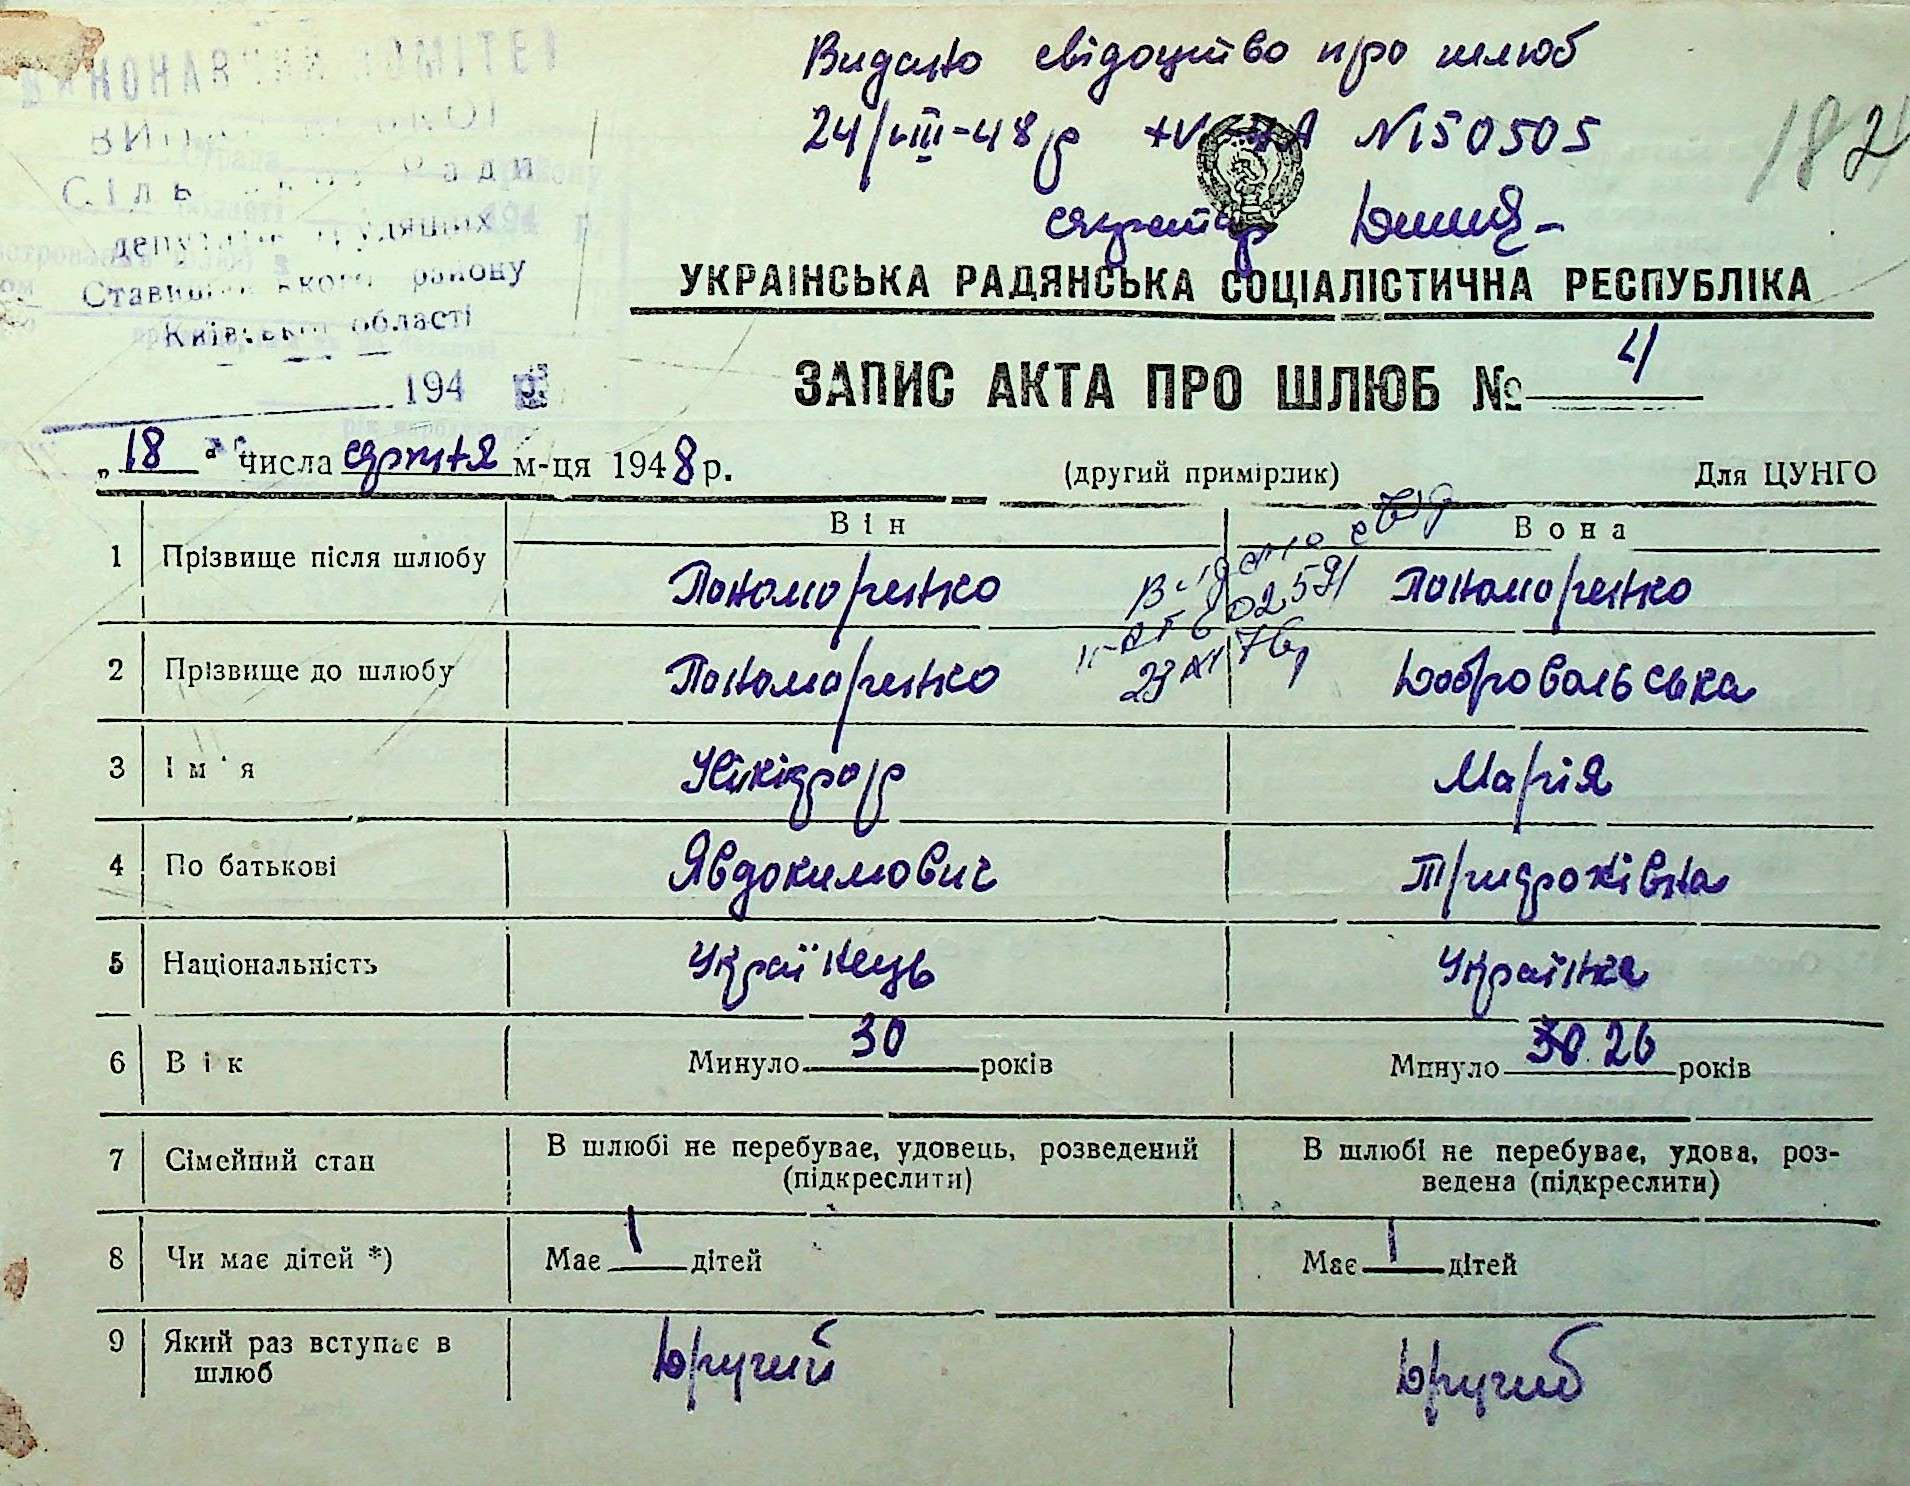 Видано свідоцтво про шлюб
24/VIII-48 р N150505
секретар
182
Сіль Ради
депутатів трудящих
Ставищанського району
Київської області
194 р.
УКРАІНСЬКА РАДЯНСЬКА СОЦІАЛІСТИЧНА РЕСПУБЛІКА
ЗАПИС АКТА ПРО ШЛЮБ № 4
„18" числа серпня м-ця 1948 р.
(другий примірник) Для ЦУНГО
Він Вона
1 Прізвище після шлюбу Пономаренко Пономаренко
Видано свід
602591
23 XI 76р
2 Прізвище до шлюбу Пономаренко Добровольська
3 Ім'я Нікіфор Марія
4 По батькові Явдокимович
5 Національність Українець Українка
6 Вік Минуло 30 років Минуло 30 26 років
7 Сімейний стан В шлюбі не перебуває, удовець, розведений (підкреслити) В шлюбі не перебуває, удова, роз-
ведена (підкреслити)
8 Чи має дітей *) Має 1 дітей Має 1 дітей
9 Який раз вступає в Другий Другий
шлюб